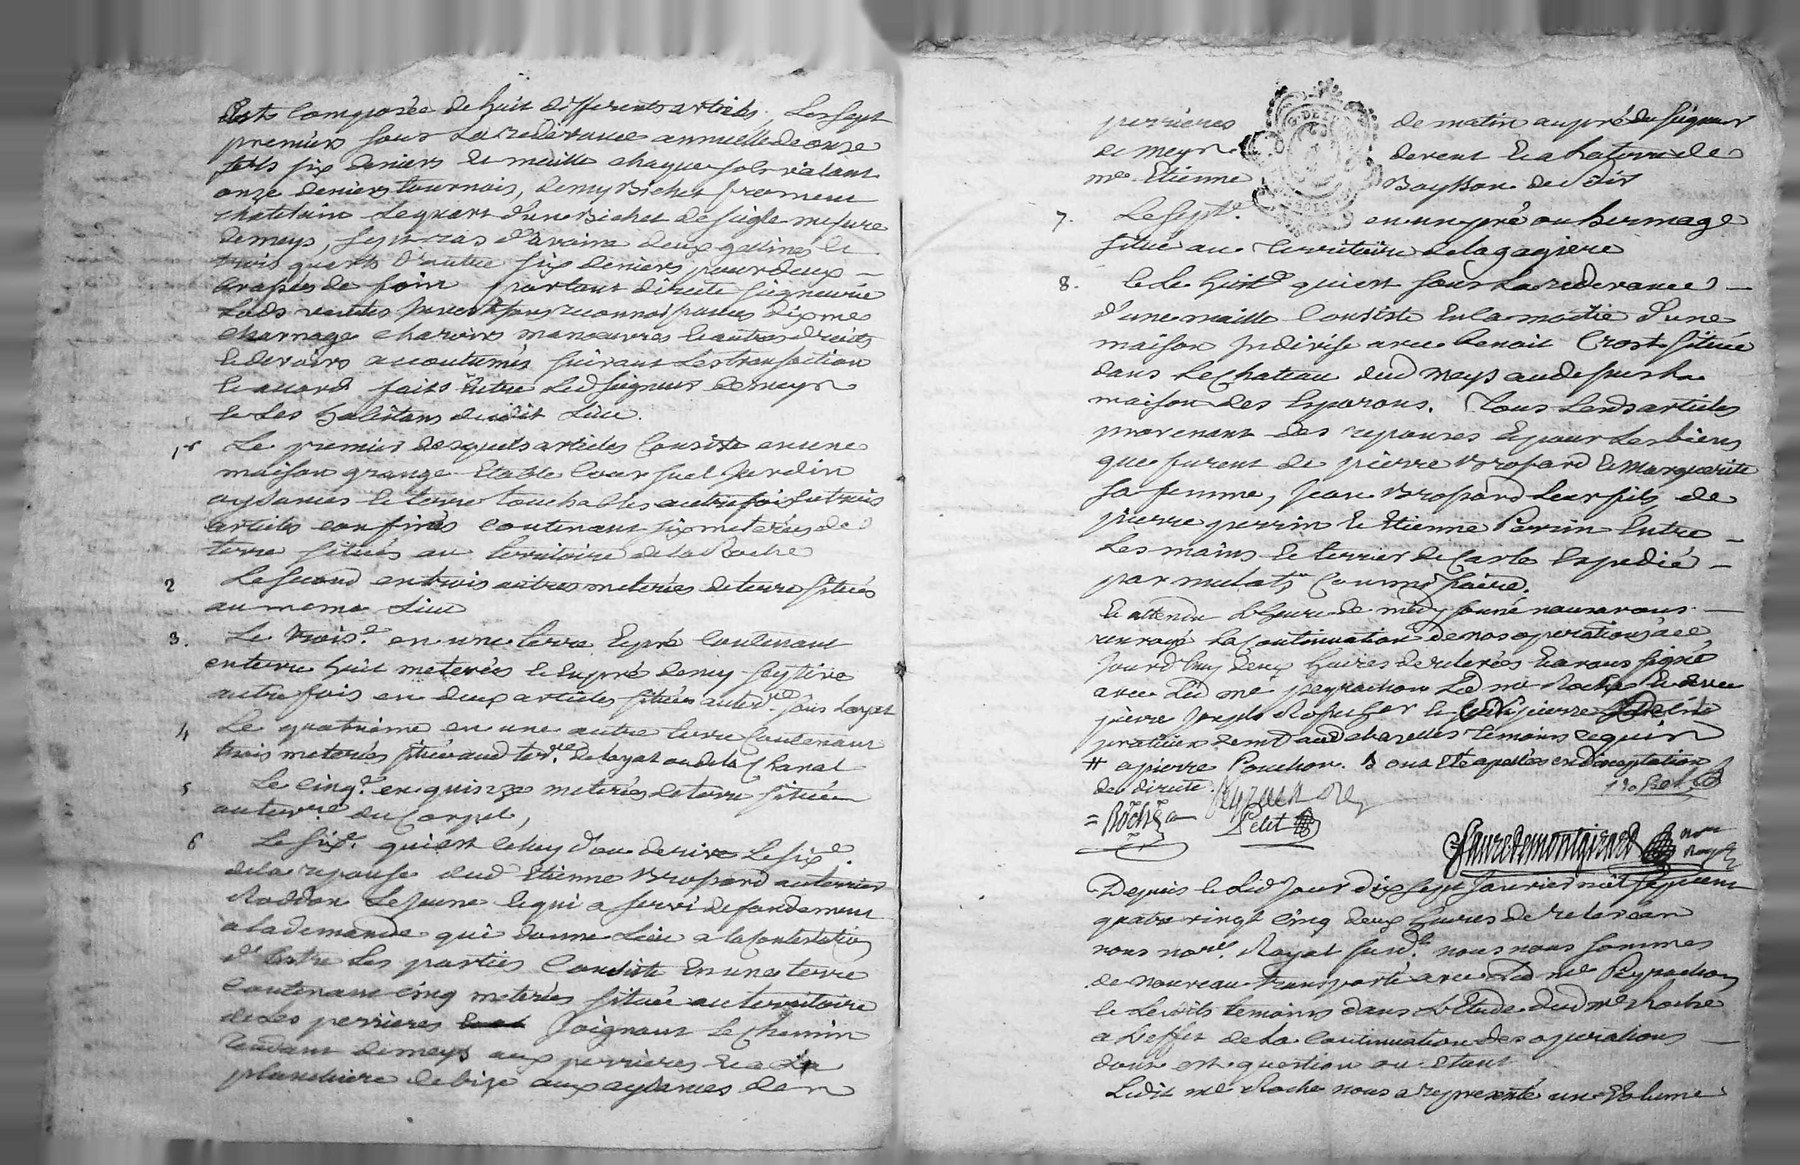 est composée de huit differents articles, Les sept
premiers sous La redevance annuelle de onze
sols six deniers et maille chaque sol valant
onze deniers tournois, demy Bichet froment
chatelain Le quart d'un Bichet de seigle mesure
de meys, sept ras d'avoine deux gellines et
trois quarts d'autre six deniers pour deux
brassées de foin portant directe seigneurie
Lods ventes investisons reconnoissances dixme
charnage charois manœuvres et autres droits
et devoirs accoutumés suivant Les transaction
et accord faits Entre Led seigneur de meys
et Les habitans dudit Lieu.
1er Le premier desquels articles Consiste en une
maison grange Etable Cour suel Jardin
aysances et terre touchables autrefois Entrois
articles confinés contenant six meterées de
terre situés au territoire de la Roche
2 Le second en trois autres meterées de terre situés
au meme Lieu
3. Le trois.e en une terre Et pré Contenant
en terre huit meterées et En pré demy seytive
autrefois en deux articles situés au ter.re sous Corpet
4 Le quatrieme en une autre terre Contenant
trois meterées situé aud ter.re de layat ou de la Chanal
5 Le cinq.e en quinze meterées de terre située
au ter.re du Corpet,
6 Le six.e qui est celuy d'ou derive Le six.e
de la reponse dud Etienne Brossard au terrier
Roddon Le Jeune Et qui a servi de fondement
a la demande qui donne Lieu a la Contestation
d'Entre Les parties Consiste En une terre
Contenant cinq meterées située au territoire
de Les perrieres Joignant Le chemin
tendant de meys aux perrieres et a La
planchiere de bize aux aysances den
perrieres de matin au pré du seigneur
de meys de vent Et a la terre de
me Etienne Boysson de soir
7. Le sept.e en un pré ou hermage
situé au territoire de la gagiere
8. Et Le huit.e qui est sous La redevance
d'une maille Consiste En la moitié d'une
maison Indivise avec benoit Crost située
dans Le Chateau dud Meys au dessus La
maison des Esparons. Tous Lesd articles
provenant des reponses Et pour Les biens
que furent de pierre Brossard et Marguerite
sa femme, Jean Brossard Leur fils, de
pierre perrin et Etienne Perrin Entre
Les mains et terrier de Carle Expedié
par mulat Commissaire.
Et attendu L'heure de midy sonné nous avons
renvoyé La Continuation de nos operations a ce
Jourd'huy deux heures de relevée Et avons signé
avec Led me peyrachon Led me Roche et avec
pierre Joseph et pierre
praticien demt aud chazelles temoins requis
# a pierre Pouchon. & ont Eté apostés en
de directe Peyrachon
= Roche Petit
Fauredemontgirard nore
Royal
Depuis et Led Jour dix sept Janvier mil sept cent
quatre vingt cinq deux heures de relevée
nous nore. Royal susd.t nous nous sommes
de nouveau transporté avec Led me Peyrachon
et Lesdits temoins dans L'Etude dud me Roche
a L'effet de la Continuation des operations
dont est question ou Etant
Ledit me Roche nous a representé un volume